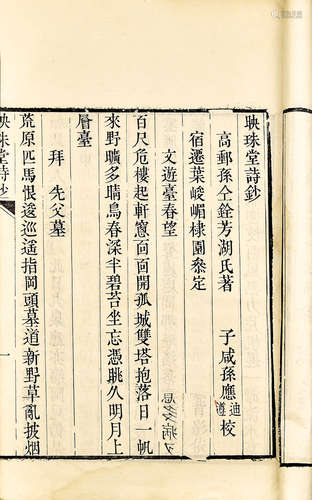 映珠堂詩鈔
高郵孫仝銓芳湖氏著 子咸孫應迪校
宿遷葉峻嵋棣園叅定
文遊臺春望
百尺危樓起軒窻面面開孤城雙塔抱落日一帆
來野曠多晴鳥春深半碧苔坐忘憑眺久明月上
層臺
拜 先父墓
荒原匹馬恨逡巡遥指岡頭墓道新野草亂披烟
映珠堂詩鈔
一